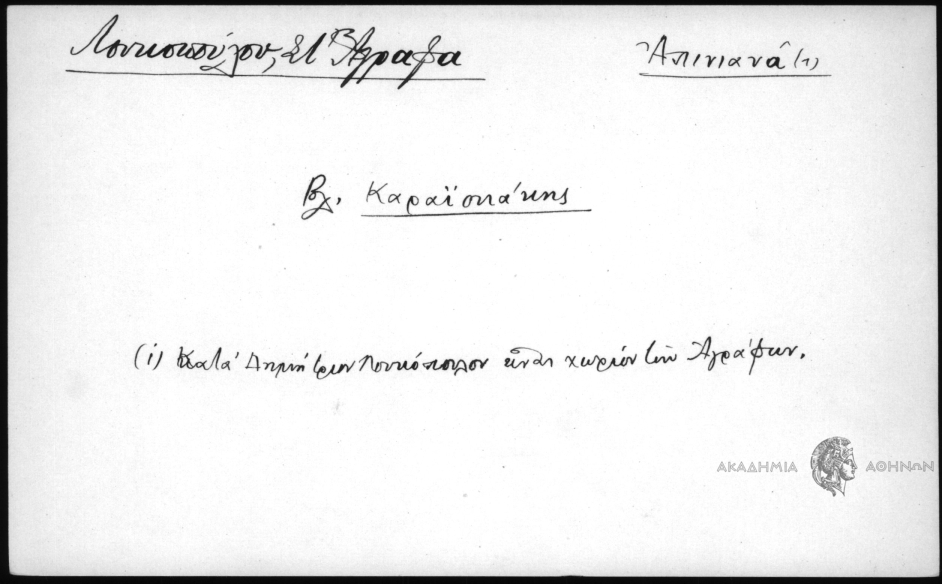 Λουκοπούλου, Στ' Ἄγραφα
Ἀπινιανά (1)
Βλ. Καραϊσκάκης
(1) Κατά Δημήτριον Λουκόπουλον εἶναι χωρίον τῶν Ἀγράφων.
ΑΚΑΔΗΜΙΑ ΑΘΗΝΩΝ